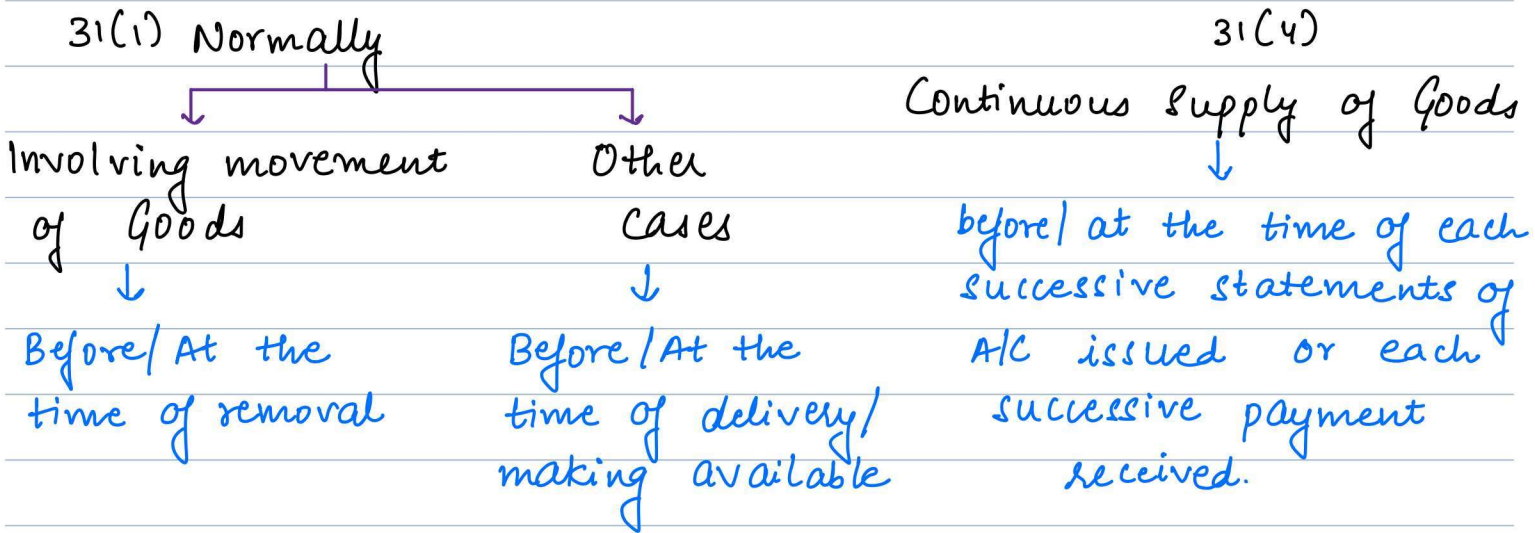 31(1) Normally
Involving movement
of Goods
Before/ At the
time of removal
Other
cases
Before/At the
time of delivery/
making available
31(4)
Continuous Supply of Goods
before/ at the time of each
successive statements of
A/C issued or each
successive payment
received.